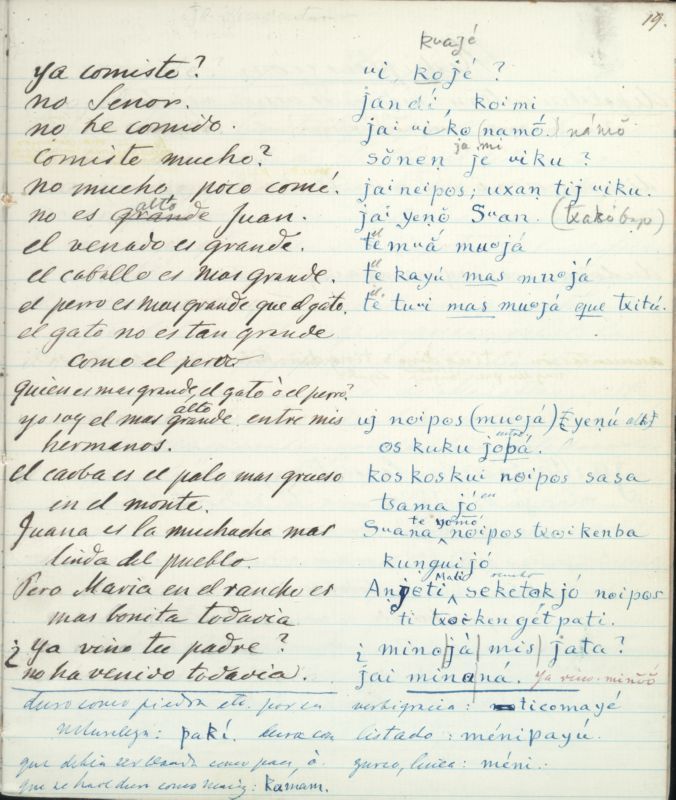 19.
kuajé
ya comiste? ui, kojé?
no Senor. jandí, koimi
no he comido. jai ui ko (namó.) námŏ
ja mi
comiste mucho? sŏneṇ je uiku?
no mucho, poco comé. jai neipos; uxaṇ tij uiku.
alto
no es grande Juan. jai yeṇŏ Suan. (txakóbapo)
el
el venado es grande. te muă muojá
el
el caballo es mas grande. te kayú mas muojá
el
el perro es mas grande que el gato. té tuui mas muojá que txitú.
el gato no es tan grande
como el perro
quien es mas grande, el gato ò el perro?
alto
yo soy el mas grande entre mis uj noipos (muojá) yeṇú
hermanos. os kuku jopá.
el caoba es el palo mas grueso koskoskui noipos sasa
en
en el monte. tsamajó
te yomó
Juana es la muchacha mas Suana noipos txoikenba
linda del pueblo. kunguijó
Matic rancho
Pero Maria en el rancho es Anjeti seketokjó noipos
mas bonita todavia ti txoiken gét pati.
¿ ya vino tu padre? ¿ minojá mis jata?
no ha venido todavia. jai minaná. ya vino. miñŏŏ
duro como piedra etc. por su verbigracia: ticomayé
naturaleza: pakí. duro con listado: ménipayú.
que debia ser blando como pan, ò queso, linea: méni.
que se hace duro como maiz: kámam.